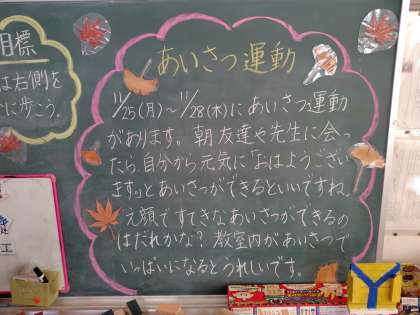 目標
は右側を
に歩こう。
あいさつ運動
11/25(月)~11/28(木)にあいさつ運動
があります。朝友達や先生に会っ
たら自分から元気に「おはようござい
ます」とあいさつができるといいですね。
元顔ですてきなあいさつができるの
はだれかな?教室内があいさつで
いっぱいになるとうれしいです。
工